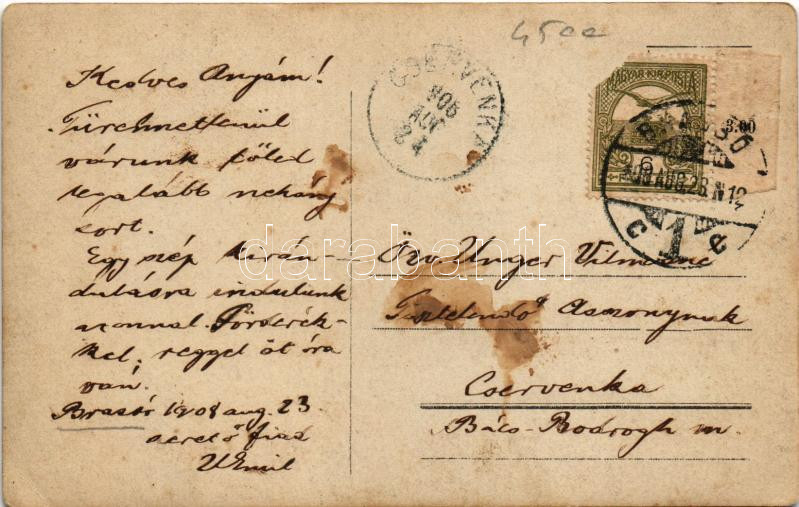 45oo
Kedves Anyám!
Türelmetlenül
várunk tőled
legalább nehány
sort.
Egy szép kirán-
dulásra indulunk
azonnal.
kel. reggel öt óra
van.
Brassó 1908 aug. 23
szerető fiad
Emil
CSERVENKA
908
AUG
24
MAGYAR KIR. POSTA
6
3.00
BRASSÓ
908 AUG. 23. N 12
1
darabanth
Özv. Unger Vilmosné
Tisztelendő Asszonynak
Cservenka
Bács-Bodrogh m.